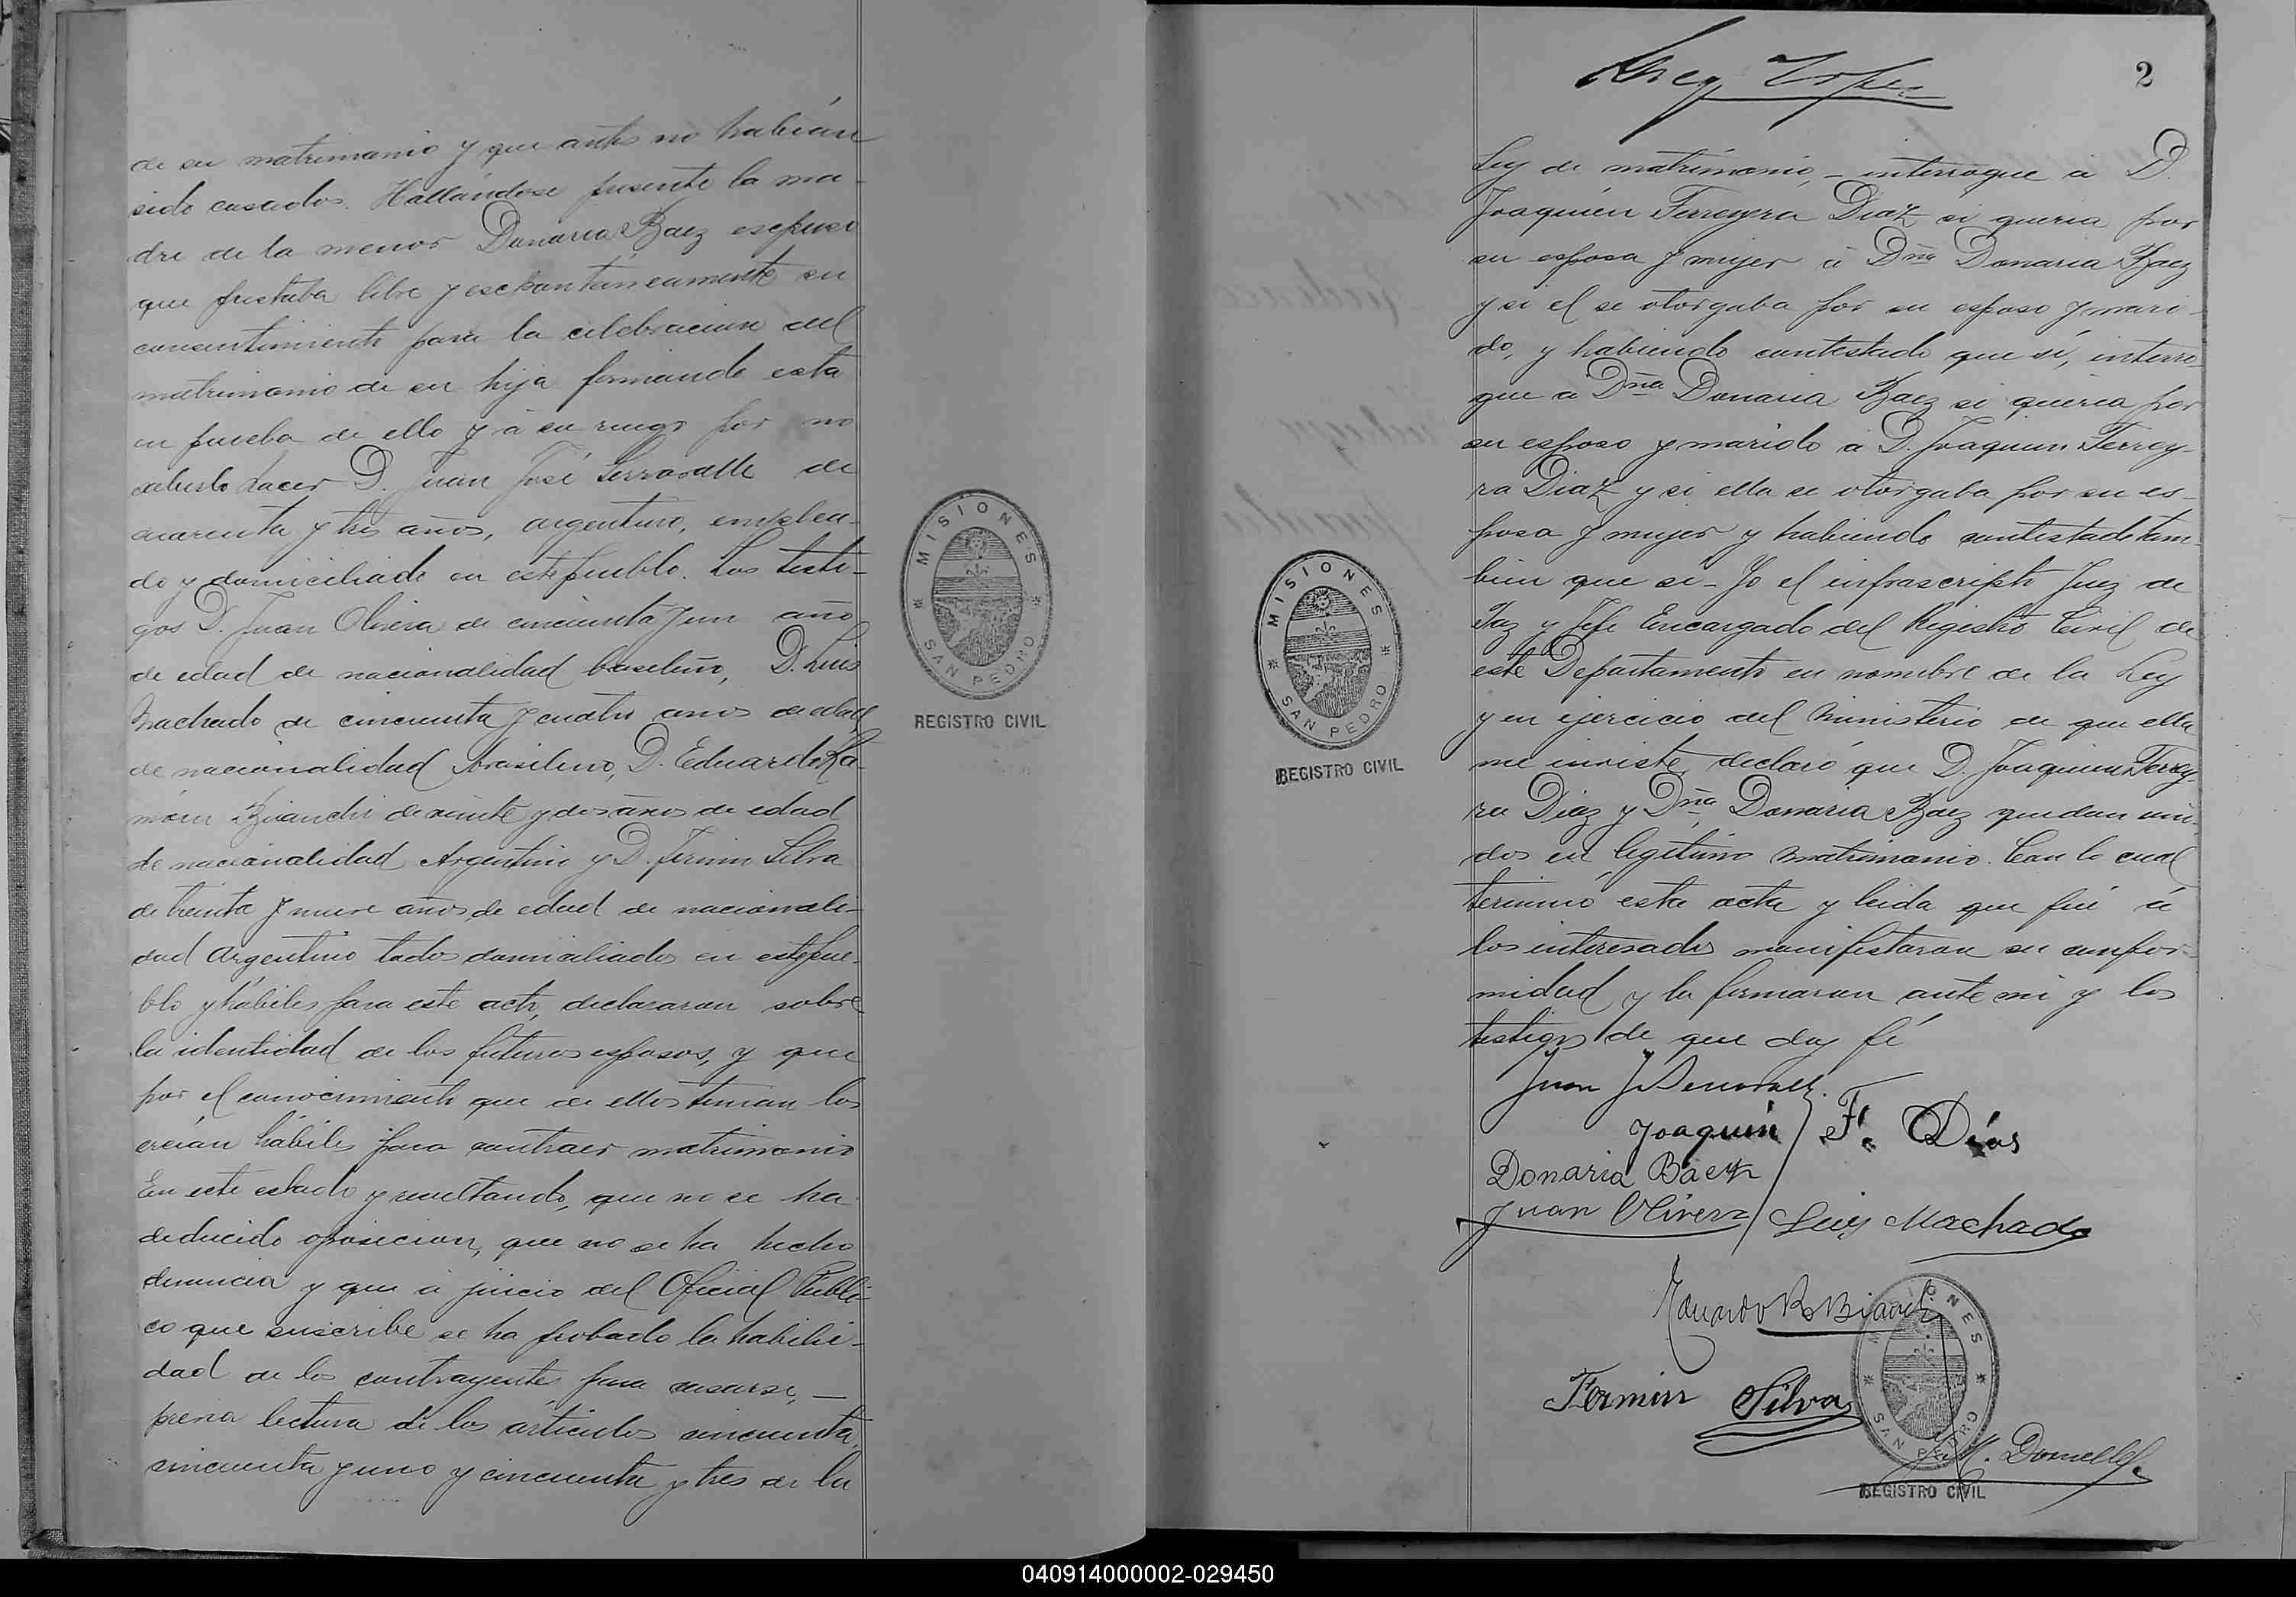 de su matrimonio y que antes no habían
sido casados. Hallándose presente la ma-
dre de la menor Donaria Baez espuso
que prestaba libre y escpontáneamente su
consentimiento para la celebracion del
matrimonio de su hija firmando esta
en prueba de ello y á su ruego por no
saberlo hacer D. Juan José Serravalle de
cuarenta y tres años, argentino, emplea-
do y domiciliado en este pueblo. Los testi-
gos D. Juan Olivera de cincuenta y un año
de edad de nacionalidad brasilero, D. Luis
Machado de cincuenta y cuatro anos de edad
de nacionalidad brasilero, D. Eduardo Ra-
mon Bianchi de veinte y dos años de edad
de nacionalidad Argentino y D. Fermin Silva
de treinta y nueve años de edad de nacionali-
dad Argentino todos domiciliados en este pue-
blo y hábiles para este acto, declararan sobre
la identidad de los futuros esposos, y que
por el conocimiento que de ellos tenian los
creían hábiles para contraer matrimonio
En este estado y resultando, que no se ha
deducido oposicion, que no se ha hecho
denuncia y que á juicio del Oficial Publi-
co que suscribe se ha probado la habili-
dad de los contrayentes para casarse, —
previa lectura de los artículos cincuenta,
cincuenta y uno y cincuenta y tres de la
MISIONES
SAN PEDRO
REGISTRO CIVIL
2
Ley de matrimonio, - interrogue á D.
Joaquin Ferreyra Diaz si queria por
su esposa y mujer á Dña Donaria Baez
y si el se otorgaba por su esposo y mari-
do, y habiendo contestado que sí, interro-
gue a Dña Donaria Baez si queria por
su esposo y marido á D. Joaquin Ferrey-
ra Diaz y si ella se otorgaba por su es-
posa y mujer y habiendo contestado tam-
bien que si - Yo el infrascripto Juez de
Paz y Jefe Encargado del Registro Civil de
este Departamento en nombre de la Ley
y en ejercicio del Ministerio de que ella
me inviste, declaró que D. Joaquin Ferrey-
ra Diaz y Dña Donaria Baez quedan uni-
dos en legítimo Matrimonio. Con lo cual
terminó esta acta y leida que fué á
los interesados manifestaron su confor-
midad y la firmaron ante mi y los
testigos de que doy fé
Juan J Serravalle
Joaquin F. Días
Donaria Baez
Juan Olivera / Luis Machado
Eduardo R Bianchi
Fermin Silva
MISIONES
SAN PEDRO
REGISTRO CIVIL
MISIONES
SAN PEDRO
REGISTRO CIVIL
040914000002-029450